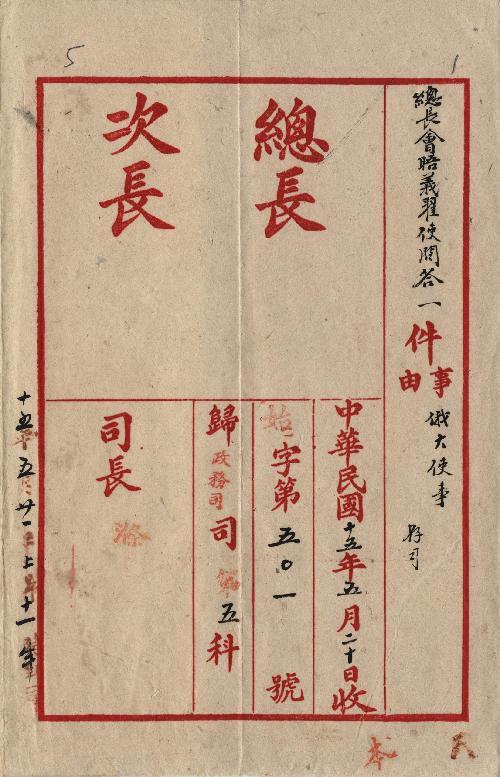 5
1
總長會晤義翟使問答一件
事由
俄大使事
存司
總長
次長
中華民國十五年五月二十日收
字第五〇一號
歸政務司司第五科
司長
十五年五月廿一
上午十一